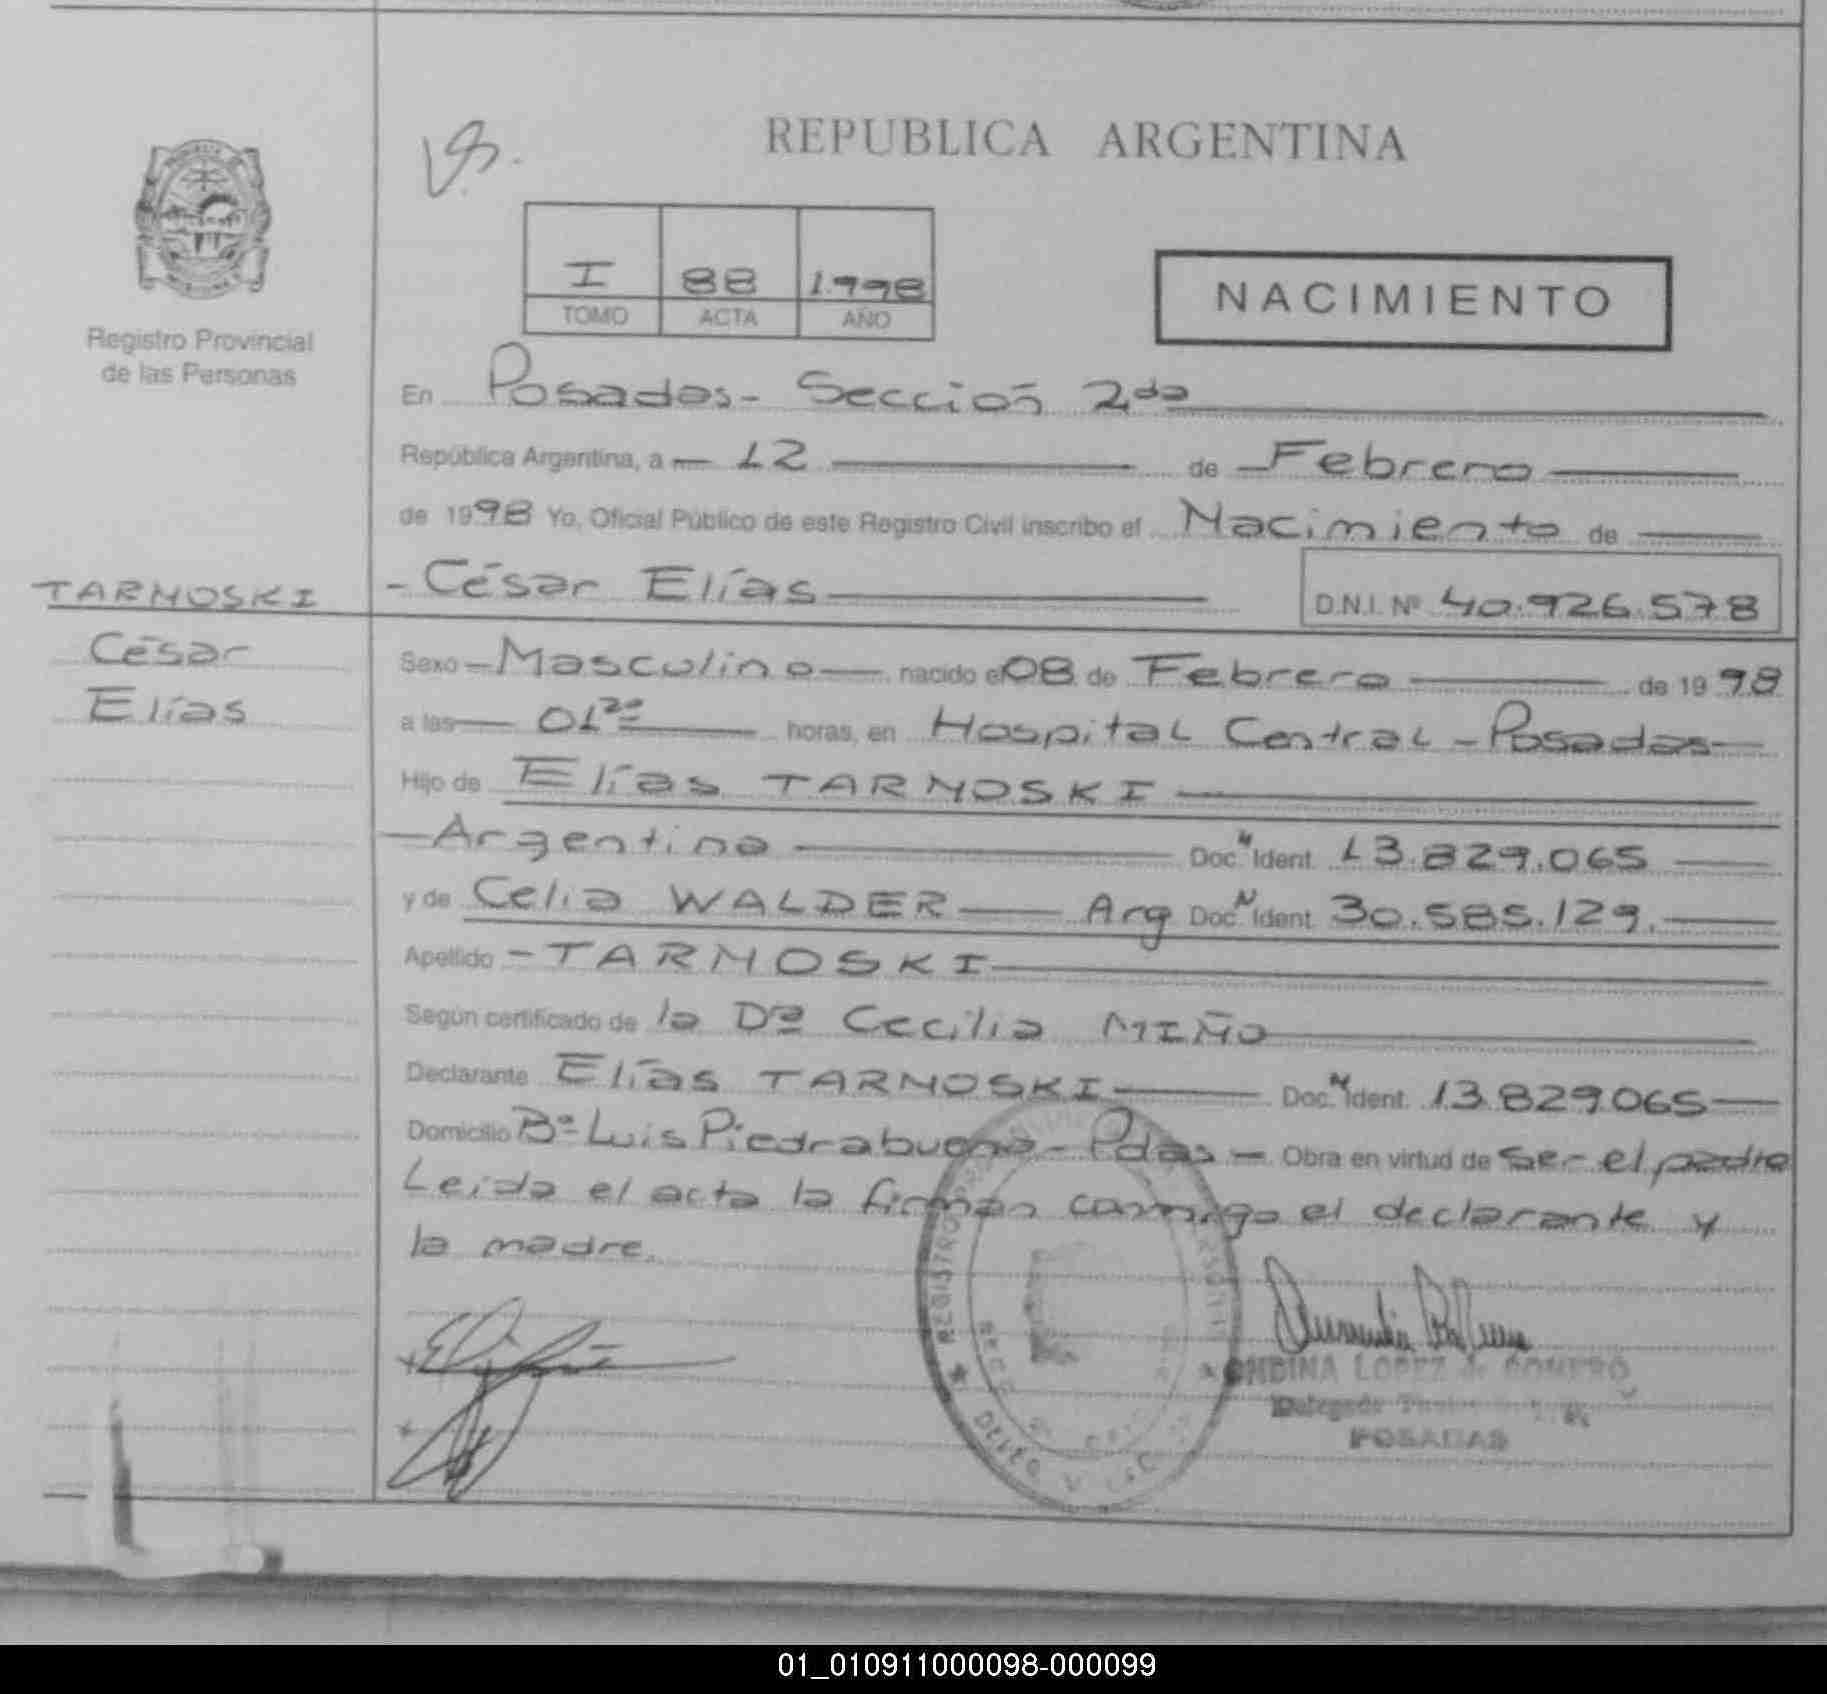 REPUBLICA ARGENTINA
I 88 1.998
TOMO ACTA AÑO
NACIMIENTO
Registro Provincial
de las Personas
En Posadas- Sección 2da
República Argentina, a 12 de Febrero
de 1998 Yo, Oficial Público de este Registro Civil inscribo el Nacimiento de
TARNOSKI
César
Elías
- César Elías D.N.I. Nº 40.926.578
Sexo Masculino nacido el 08 de Febrero de 1998
a las 01 horas, en Hospital Central - Posadas
Hijo de Elías TARNOSKI
Argentino Doc. Ident. 13.829.065
y de Celia WALDER Arg Doc. Ident. 30.585.129.
Apellido - TARNOSKI
Según certificado de la Dra Cecilia MIÑO
Declarante Elías TARNOSKI Doc. Ident. 13.829.065
Domicilio Bº Luis Piedrabuena - Pdas - Obra en virtud de ser el padre
Leída el acta la firman conmigo el declarante y
la madre.
ONDINA LOPEZ de ROMERO
POSADAS
01_010911000098-000099